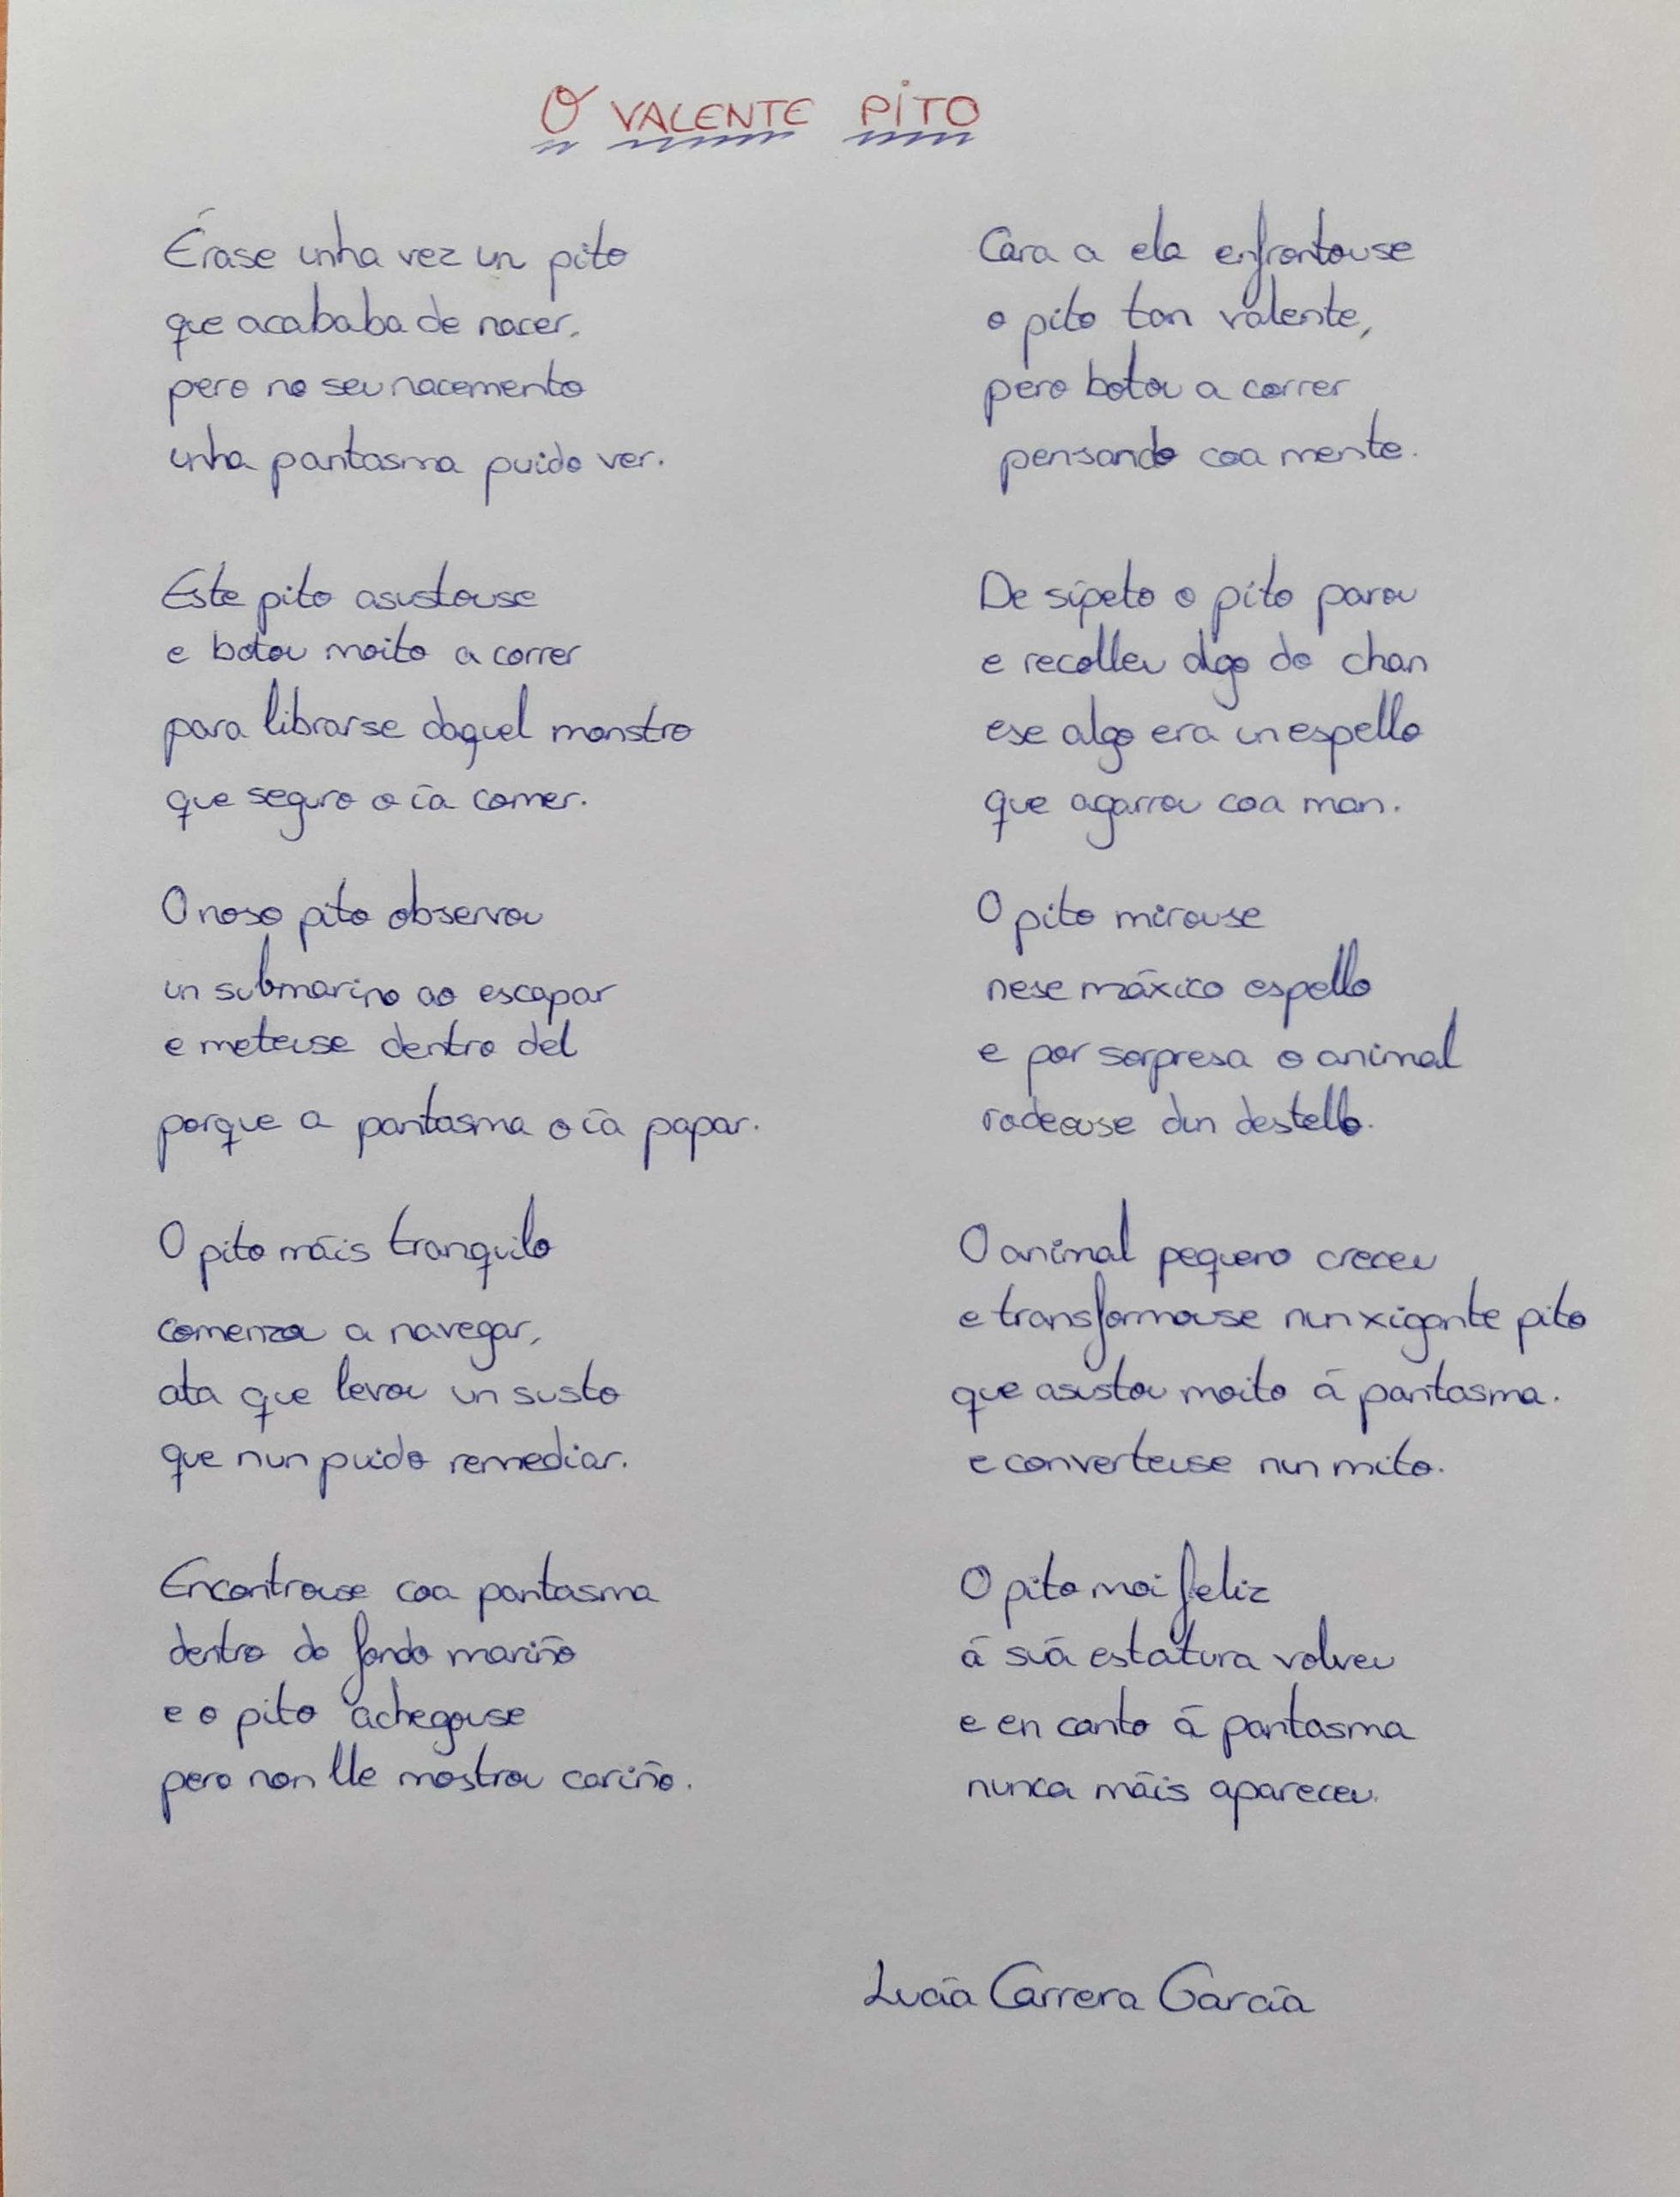 O VALENTE PITO
Érase unha vez un pito
que acababa de nacer,
pero no seu nacemento
unha pantasma puido ver.
Este pito asustouse
e botou moito a correr
para librarse daquel monstro
que seguro o ía comer.
O noso pito observou
un submarino ao escapar
e meteuse dentro del
porque a pantasma o ía papar.
O pito máis tranquilo
comenzou a navegar,
ata que levou un susto
que nun puido remediar.
Encontrouse coa pantasma
dentro do fondo mariño
e o pito achegouse
pero non lle mostrou cariño.
Cara a ela enfrontouse
o pito tan valente,
pero botou a correr
pensando coa mente.
De sípeto o pito parou
e recolleu algo do chan
ese algo era un espello
que agarrou coa man.
O pito mirouse
nese máxico espello
e por sorpresa o animal
rodeouse dun destello.
O animal pequeno creceu
e transformouse nun xigante pito
que asustou moito á pantasma.
e converteuse nun mito.
O pito moi feliz
á súa estatura volveu
e en canto á pantasma
nunca máis apareceu.
Lucía Carrera García